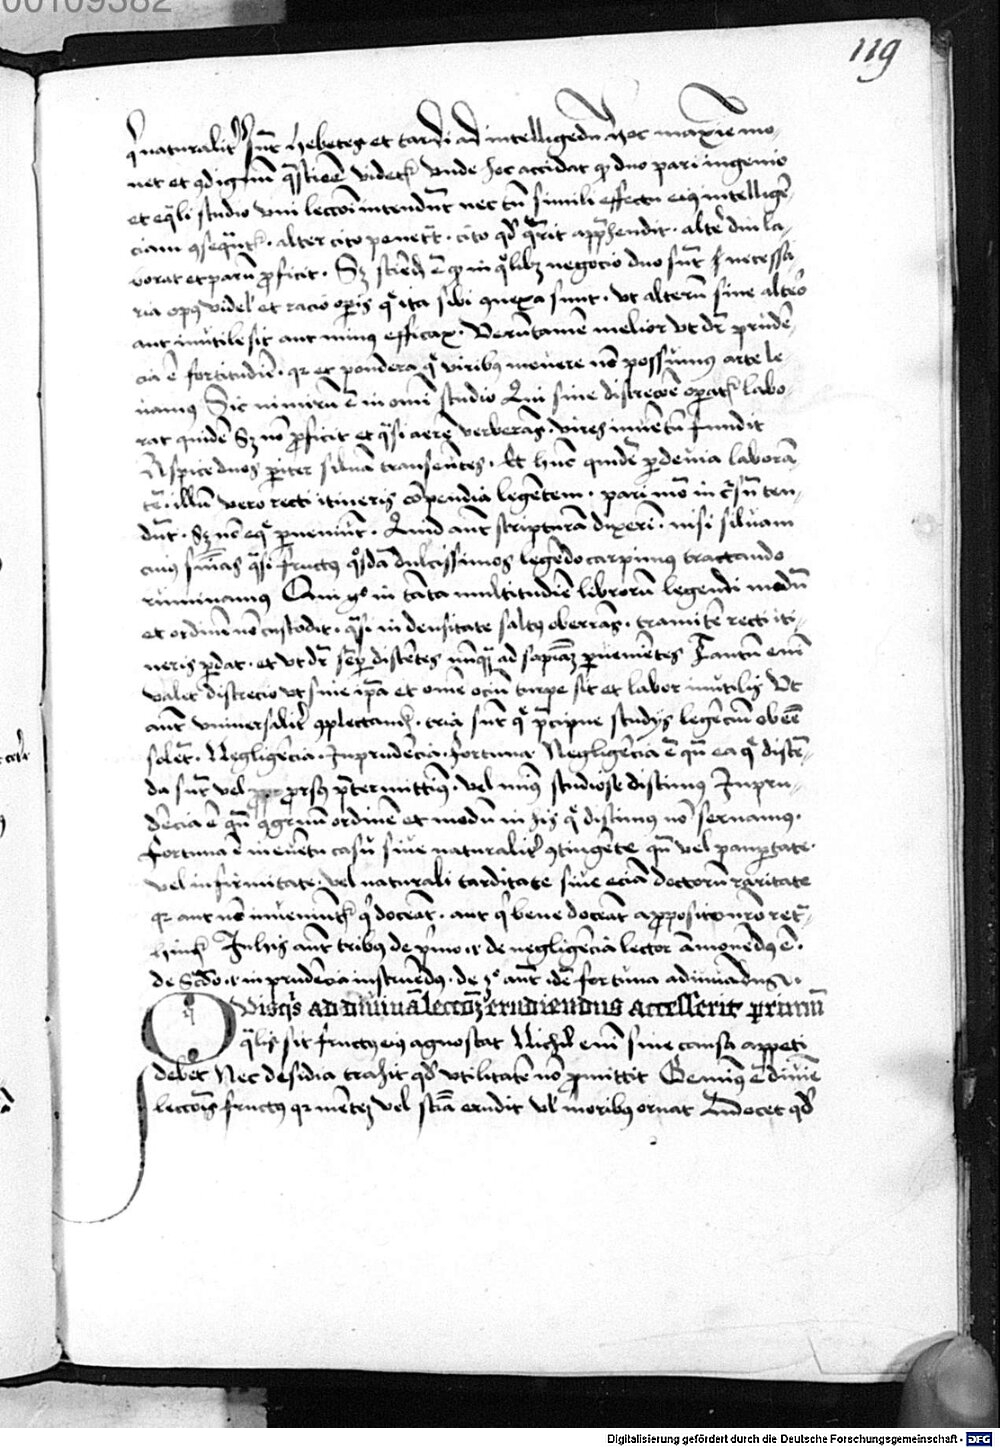 00109382
119
qui naturalit(er) su(n)t hebetes et tardi ad intelligendu(m) Hoc maxi(m)e mo-
net et (con)dignu(m) q(uesti)o(n)e videt(ur) unde hoc accidat q(uod) duo pari ingenio
et eq(ua)li studio uni lecc(i)oni intendu(n)t nec t(ame)n simili effectu ei(us) intellige(n)-
ciam (con)sequ(n)t(ur) . alter cito penet(ra)t . cito q(uo)d q(ue)rit app(re)hendit . alt(er) diu la-
borat et paru(m) p(ro)ficit . S(ed) sciend(um) e(st) q(uod) in q(uo)lib(et) negocio duo su(n)t necessa-
ria opus videl(icet) et racio op(er)is q(ue) ita sibi (con)nexa sunt . ut alteru(m) sine alt(er)o
aut inutile sit aut minus efficax . Verutame(n) melior ut d(icitu)r prude(n)-
cia e(st) fortitudi(n)e . q(uia) et pondera q(ue) viribus movere no(n) possumus arte le-
vamus Sic nimiru(m) e(st) in omni studio Qui sine discrec(i)o(n)e op(er)at(ur) labo-
rat quide(m) S(ed) no(n) p(ro)ficit et q(ua)si aere(m) verberans . vires in ventu(m) fundit
Aspice duos p(ar)iter silva(m) transeu(n)tes . Et hu(n)c quide(m) p(er) devia labora(n)-
te(m) . illu(m) vero recti itineris co(m)pendia legentem . pari mo(do) in c(ur)su(m) ten-
du(n)t . S(ed) no(n) eq(ue) p(er)veniu(n)t . Quid aut(em) scriptura(m) dixeri(m) . nisi silvam
cuius s(ente)n(t)ias q(ua)si fructus q(uo)sda(m) dulcissimos lege(n)do carpimus tractando
ruminamus Qui (er)g(o) in ta(n)ta multitudi(n)e libroru(m) legendi modu(m)
et ordine(m) no(n) custodit . q(ua)si in densitate saltus oberrans . tramite(m) recti iti-
neris p(er)dat . et ut d(icitu)r se(m)p(er) discentes nu(n)q(uam) ad sapi(enci)a(m) p(er)venie(n)tes Tantu(m) eni(m)
valet discrecio ut sine ip(s)a et omne ociu(m) turpe sit et labor inutilis Ut
aut(em) universalit(er) (com)plectant(ur) . tria su(n)t q(ue) p(re)cipue studiis lege(n)ciu(m) obe(ss)e
sole(n)t . Negligencia . Inprudencia . Fortuna Negligencia e(st) qu(um) ea q(ue) disce(n)-
da su(n)t vel prorsus p(re)termittim(us) . vel min(us) studiose discimus Inpru-
dencia e(st) qu(um) (con)gruu(m) ordine(m) et modu(m) in his q(ue) discimus no(n) servamus .
Fortuna e(st) in eventu casu sive naturalit(er) (con)tinge(n)te qu(um) vel paup(er)tate .
vel infirmitate . vel naturali tarditate sive ecia(m) doctoru(m) raritate
q(uia) aut no(n) inveniunt(ur) q(ui) docea(n)t . aut q(ui) bene docea(n)t a p(ro)posito n(ost)ro ret(ra)-
hint(ur) In his aut(em) tribus de p(ri)mo . i(d est) de negligencia lector a(d)mone(n)dus e(st) .
de S(e)c(un)do . i(d est) inprude(n)cia instruendus . de 3o aut(em) . id e(st) fortuna adiuvandus e(st) .
Quisq(ui)s ad divina(m) lecc(i)o(nem) erudiendus accesserit primu(m)
q(ua)lis sit fructus eius agnoscat Nichil eni(m) sine causa appeti
debet Nec desidia trahit q(uo)d utilitate(m) no(n) p(ro)mittit Geminus e(st) divi(n)e
lecc(i)o(n)is fructus q(uia) mentem vel sci(enci)a erudit v(e)l moribus ornat docet q(uo)d
Digitalisierung gefördert durch die Deutsche Forschungsgemeinschaft - DFG